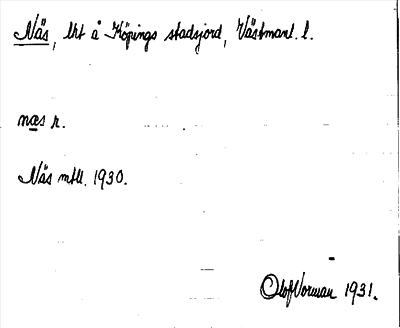 Näs, lht å Köpings stadsjord, Västmanl. l.
næs r.
Näs mtll. 1930.
Olof Norman 1931.